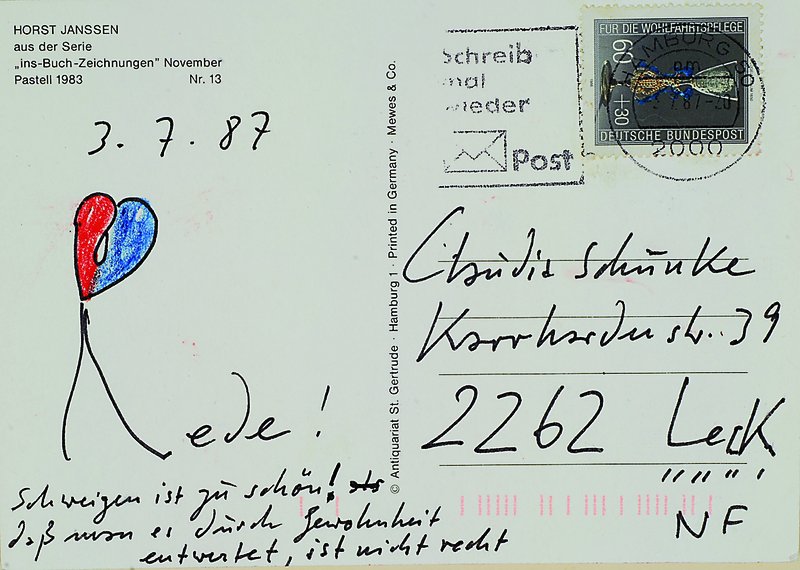 HORST JANSSEN
aus der Serie
„ins-Buch-Zeichnungen” November
Pastell 1983 Nr. 13
3. 7. 87
Rede!
Schweigen ist zu schön! als
daß man es durch Gewohnheit
entwertet, ist nicht recht
© Antiquariat St. Gertrude · Hamburg 1 · Printed in Germany · Mewes & Co.
Schreib
mal
wieder
Post
FÜR DIE WOHLFAHRTSPFLEGE
60+30
DEUTSCHE BUNDESPOST
HAMBURG
2000
Claudia Schünke
Karrharder str. 39
2262 Leck
NF